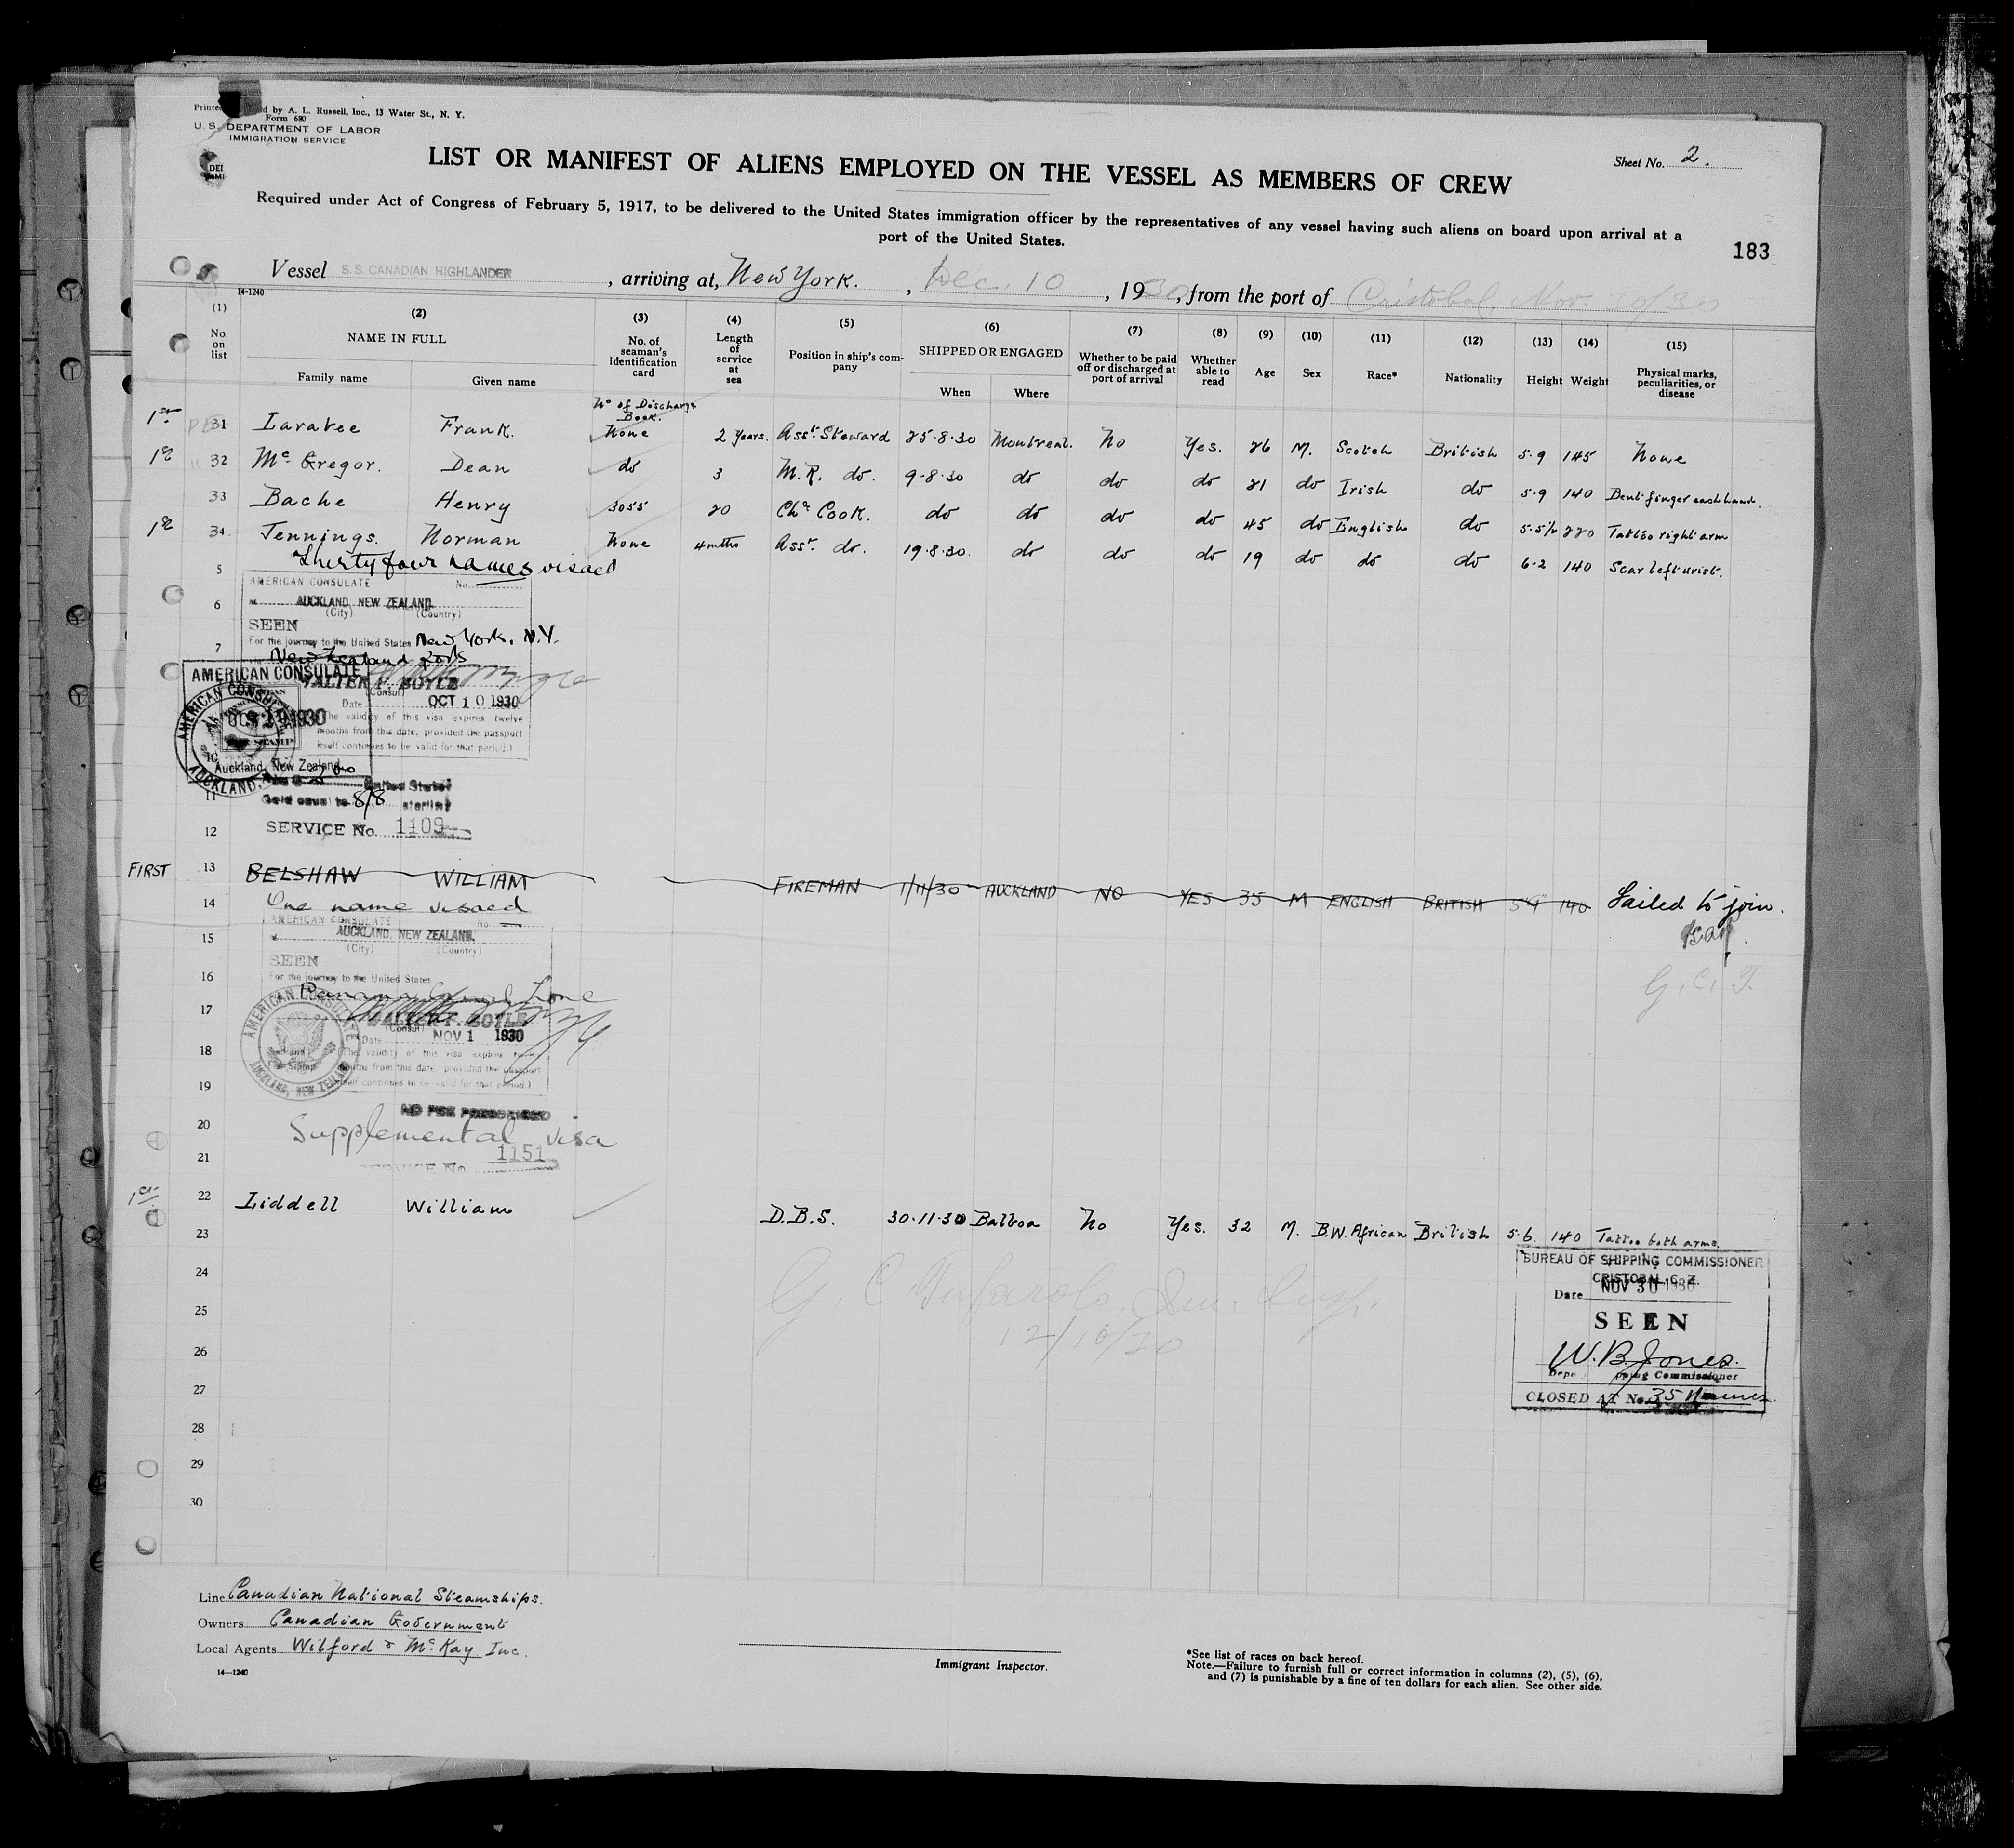 Printed by A. L. Russell, Inc., 13 Water St., N. Y.
Form 680
U. S. DEPARTMENT OF LABOR
IMMIGRATION SERVICE
LIST OR MANIFEST OF ALIENS EMPLOYED ON THE VESSEL AS MEMBERS OF CREW
Sheet No. 2.
Required under Act of Congress of February 5, 1917, to be delivered to the United States immigration officer by the representatives of any vessel having such aliens on board upon arrival at a
port of the United States.
183
Vessel S. S. CANADIAN HIGHLANDER, arriving at, New York., Dec. 10, 1930, from the port of Cristobal, Nov. 30/30
14-1240
(1) (2) (3) (4) (5) (6) (7) (8) (9) (10) (11) (12) (13) (14) (15)
No. on list NAME IN FULL No. of seaman's identification card Length of service at sea Position in ship's company SHIPPED OR ENGAGED Whether to be paid off or discharged at port of arrival Whether able to read Age Sex Race* Nationality Height Weight Physical marks, peculiarities, or disease
Family name Given name When Where
No of Discharge Book.
1st 31 Laratee Frank. None 2 years. Asst. Steward 25·8·30 Montreal. No Yes. 26 M. Scotch British 5·9 145 None
1st 32 Mc Gregor. Dean do 3 M.R. do. 9·8·30 do do do 21 do Irish do 5·9 140 Bent finger each hand.
33 Bache Henry 3055 20 Chf Cook. do do do do 45 do English do 5·5½ 220 Tattoo right arm
1st 34. Jennings. Norman None 4 mths Asst. do. 19·8·30. do do do 19 do do do 6·2 140 Scar left wrist.
Thirty four names visaed
5
AMERICAN CONSULATE No.
6 AUCKLAND, NEW ZEALAND.
(City) (Country)
SEEN
7 For the journey to the United States New York, N.Y.
New Zealand ports
AMERICAN CONSULATE
WALTER F. BOYLE
(Consul)
Date OCT 10 1930
(The validity of this visa expires twelve
months from this date, provided the passport
itself continues to be valid for that period.)
Auckland, New Zealand
United States
11 Gold equal to 8/8 sterling
12 SERVICE No. 1109
FIRST 13 BELSHAW WILLIAM FIREMAN 1/11/30 AUCKLAND NO YES 35 M ENGLISH BRITISH 5'9" 140 Failed to join.
14 One name visaed
AMERICAN CONSULATE No.
15 AUCKLAND, NEW ZEALAND.
(City) (Country)
SEEN
16 For the journey to the United States
G. C. T.
Panama Canal Zone
17 WALTER F. BOYLE
(Consul)
AMERICAN CONSULATE
AUCKLAND, NEW ZEALAND
Date NOV 1 1930
18 (The validity of this visa expires twelve
months from this date, provided the passport
19 itself continues to be valid for that period.)
NO FEE PRESCRIBED
20 Supplemental visa
21 SERVICE No. 1151
1st 22 Liddell William D.B.S. 30·11·30 Balboa No Yes. 32 M. B.W. African British 5·6. 140 Tattoo both arms.
23
BUREAU OF SHIPPING COMMISSIONER
CRISTOBAL, C. Z.
24 Date NOV 30 1930
25 SEEN
12/10/30
26 W. B. Jones.
Commissioner
27 CLOSED AT No. 35 Names
28
29
30
Line Canadian National Steamships.
Owners Canadian Government
Local Agents Wilford & Mc Kay Inc.
14—1240
Immigrant Inspector.
*See list of races on back hereof.
Note.—Failure to furnish full or correct information in columns (2), (5), (6),
and (7) is punishable by a fine of ten dollars for each alien. See other side.